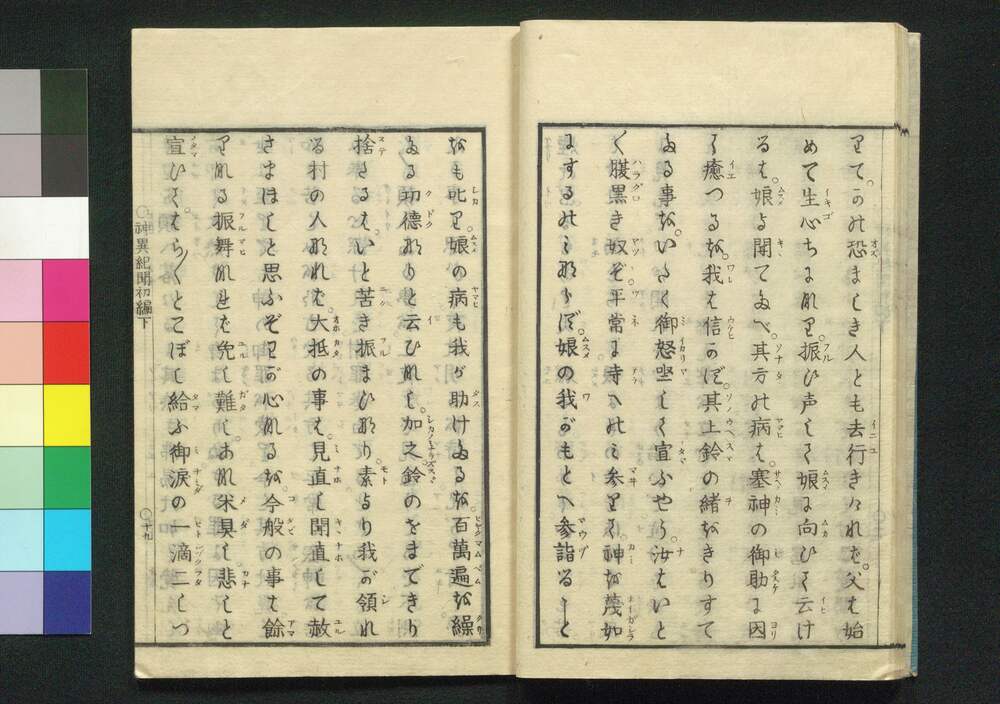 りて。かの恐ましき人とも去行きければ。父は始
めて生心ちになり。振ひ声して娘に向ひて云け
るは。娘よ聞てよ。其方の病は。塞神の御助に因
て癒つるを。我は信かず。其上鈴の緒をきりすて
たる事を。いたく御怒坐して宣ふやう。汝はいと
く腹黒き奴ぞ。平常に寺へのみ参りて。神を蔑如
にするのみならず。娘の我がもとへ参詣るすら
をも叱り。娘の病も我が助けたるを。百萬遍を繰
たる功德なりと云ひなし。加之鈴のをまできり
捨たるは。いと苦き振まひなり。素より我が領れ
る村の人なれば。大抵の事は。見直し聞直して赦
さまほしと思ふぞわが心なるを。今般の事は餘
りなる振舞なれば免し難し。あな哭具し。悲しと
宣ひて。はら〳〵とこぼし給ふ御涙の一滴二しつ
○神異紀聞初編下
○十九